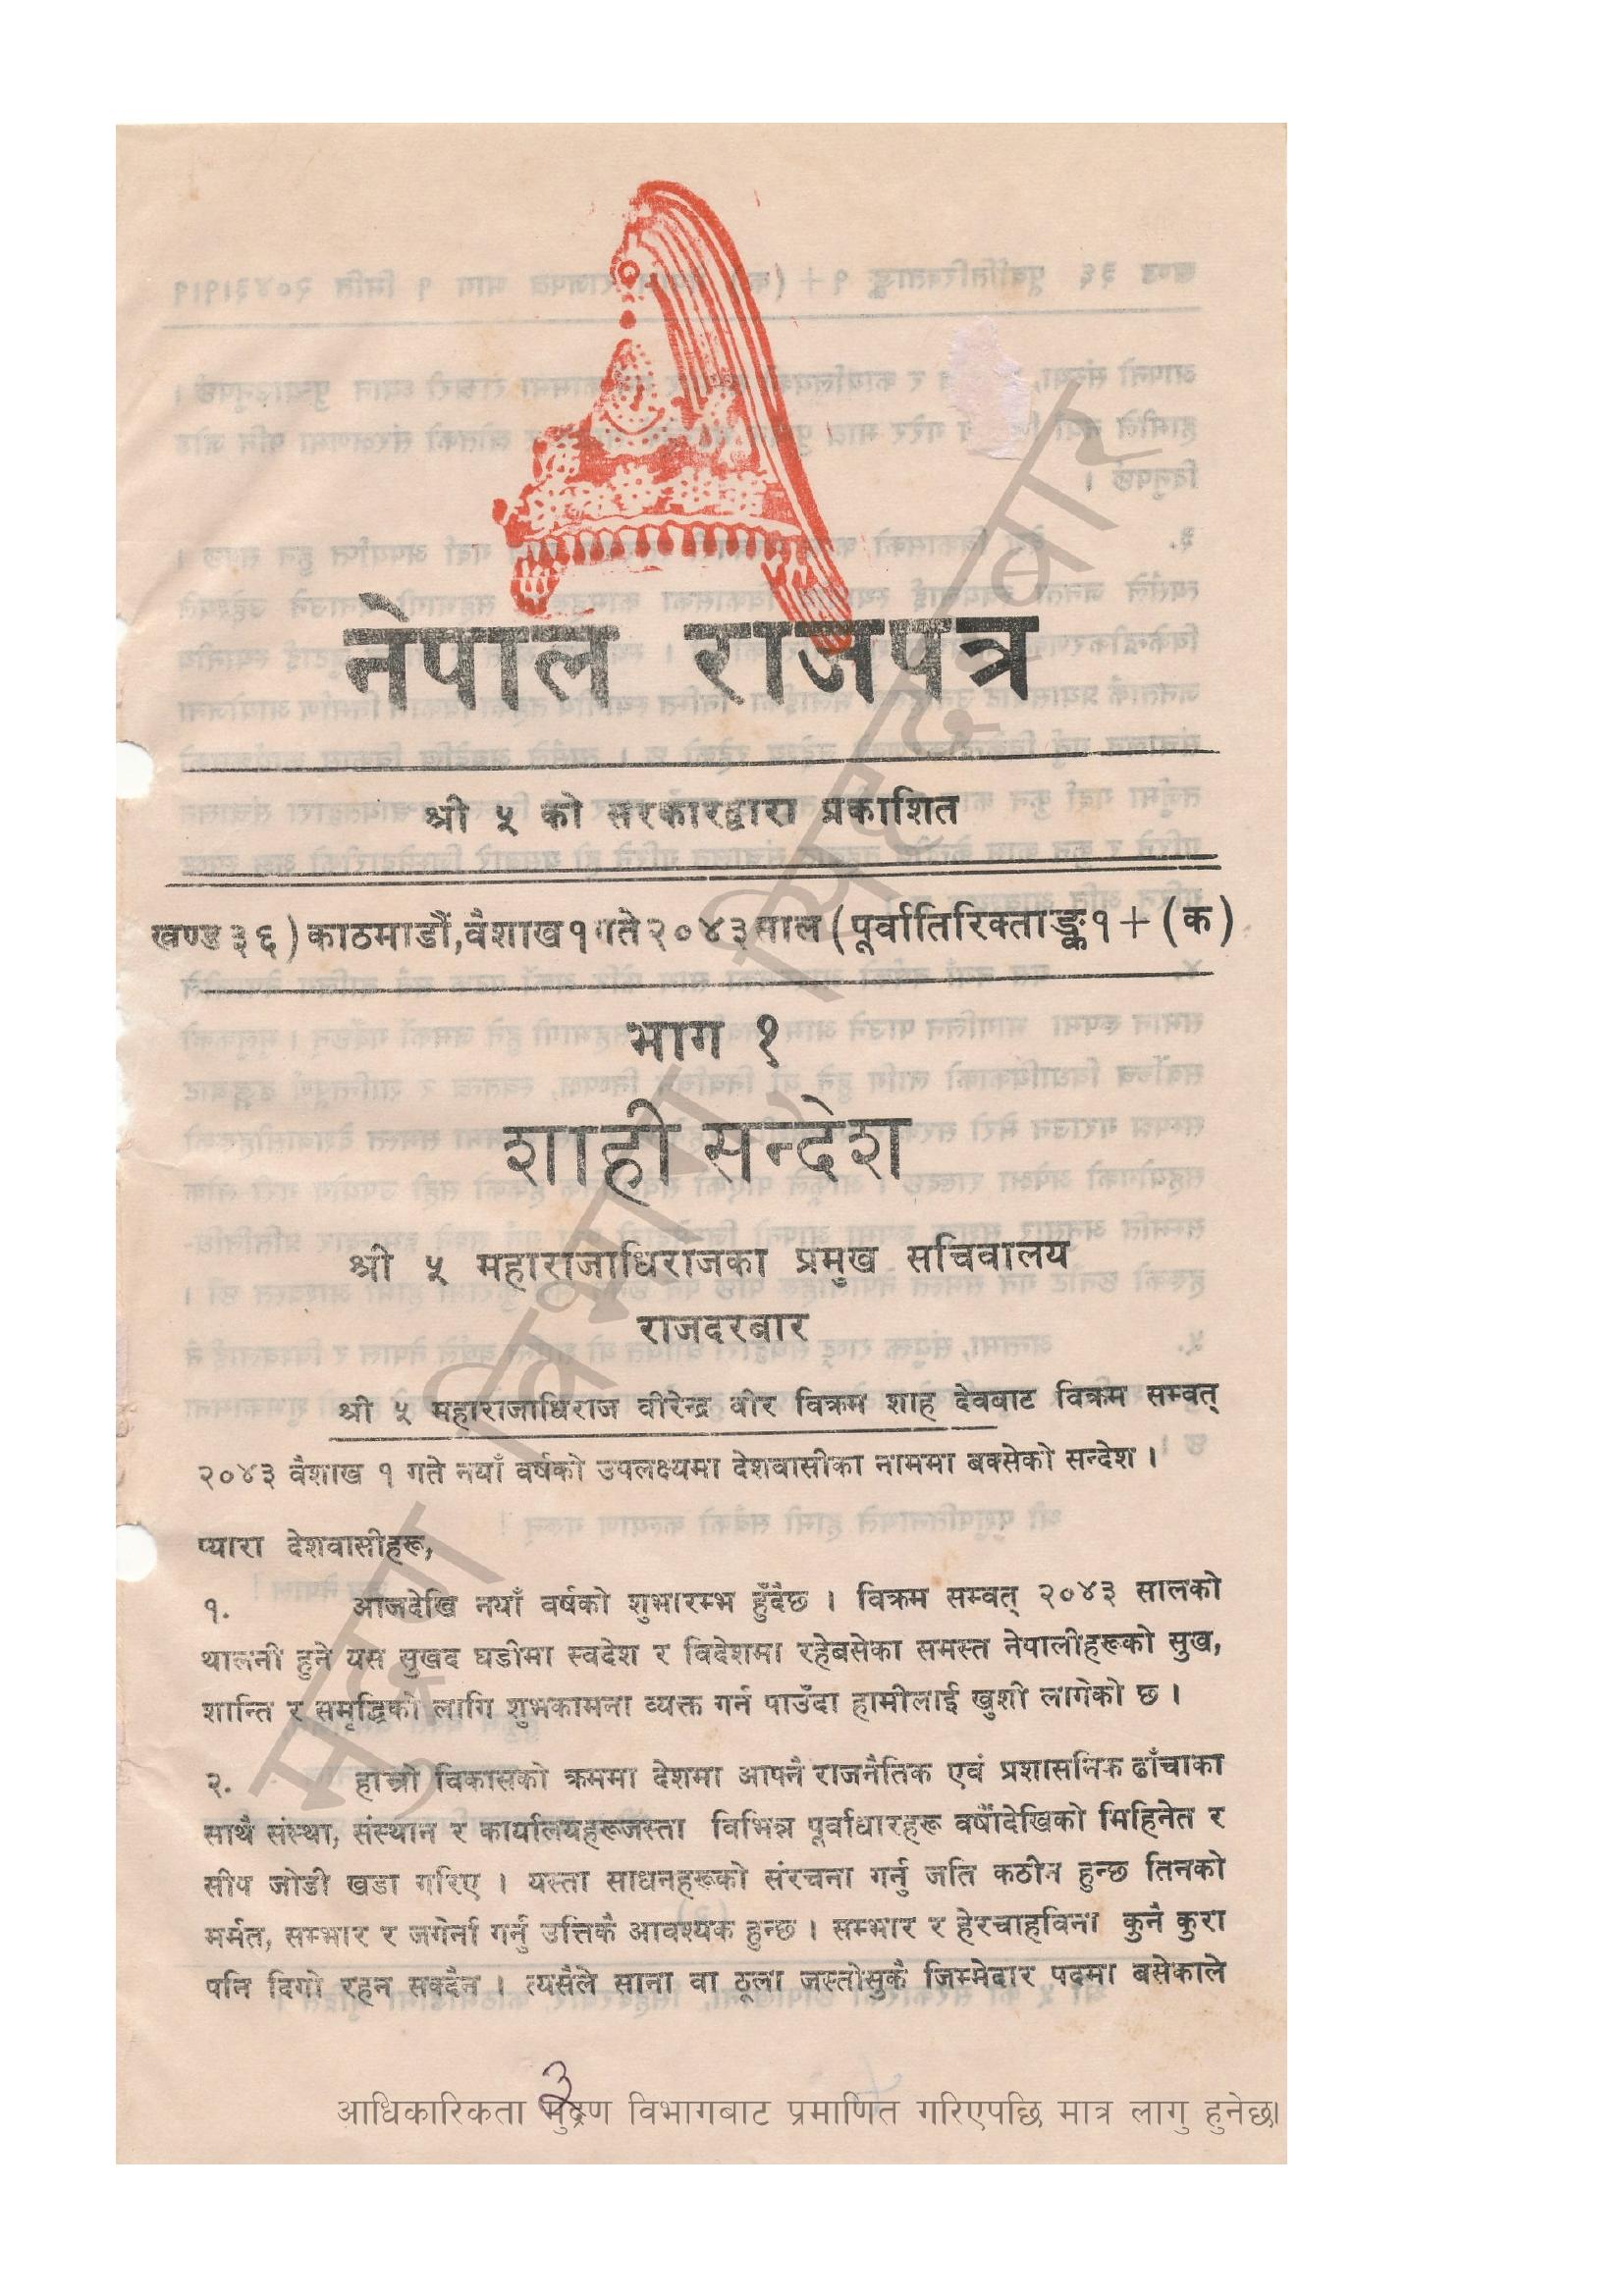 नेपाल राजपत्र
श्री ५ को सरकारद्वारा प्रकाशित
खण्ड ३६) काठमाडौं, वैशाख १ गते २०४३ साल (पूर्वातिरिक्ताङ्क १ + (क)
भाग १
शाही सन्देश
श्री ५ महाराजाधिराजका प्रमुख सचिवालय
राजदरबार
श्री ५ महाराजाधिराज वीरेन्द्र वीर विक्रम शाह देवबाट विक्रम सम्वत्
२०४३ वैशाख १ गते नयाँ वर्षको उपलक्ष्यमा देशवासीका नाममा बक्सेको सन्देश ।
प्यारा देशवासीहरू,
१. आजदेखि नयाँ वर्षको शुभारम्भ हुँदैछ । विक्रम सम्वत् २०४३ सालको
थालनी हुने यस सुखद घडीमा स्वदेश र विदेशमा रहेबसेका समस्त नेपालीहरूको सुख,
शान्ति र समृद्धिको लागि शुभकामना व्यक्त गर्न पाउँदा हामीलाई खुशी लागेको छ ।
२. हाम्रो विकासको क्रममा देशमा आफ्नै राजनैतिक एवं प्रशासनिक ढाँचाका
साथै संस्था, संस्थान र कार्यालयहरूजस्ता विभिन्न पूर्वाधारहरू वर्षौंदेखिको मिहिनेत र
सीप जोडी खडा गरिए । यस्ता साधनहरूको संरचना गर्नु जति कठीन हुन्छ तिनको
मर्मत, सम्भार र जगेर्ना गर्नु उत्तिकै आवश्यक हुन्छ । सम्भार र हेरचाहविना कुनै कुरा
पनि दिगो रहन सक्दैन । त्यसैले साना वा ठूला जस्तोसुकै जिम्मेदार पदमा बसेकाले
३
आधिकारिकता मुद्रण विभागबाट प्रमाणित गरिएपछि मात्र लागु हुनेछ।
मुद्रण विभाग, सिंहदरबार